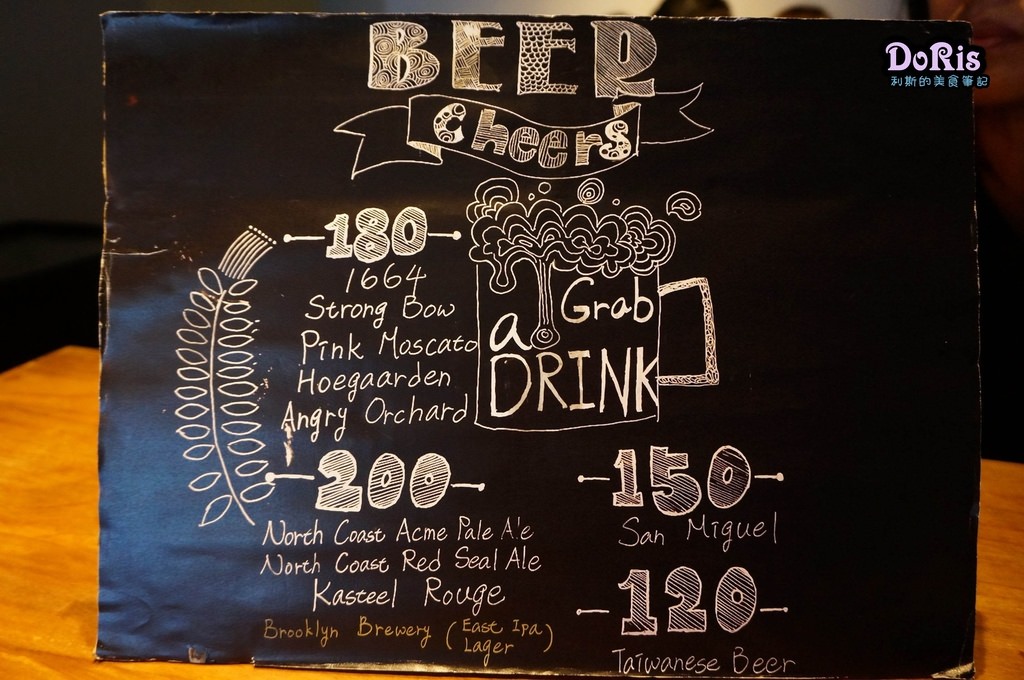 BEER
Cheers
DoRis
利斯的美食筆記
180
1664
Strong Bow
Pink Moscato
Hoegaarden
Angry Orchard
Grab
a
DRINK
200
North Coast Acme Pale A'e
North Coast Red Seal Ale
Kasteel Rouge
Brooklyn Brewery (East Ipa
Lager)
150
San Miguel
120
Taiwanese Beer